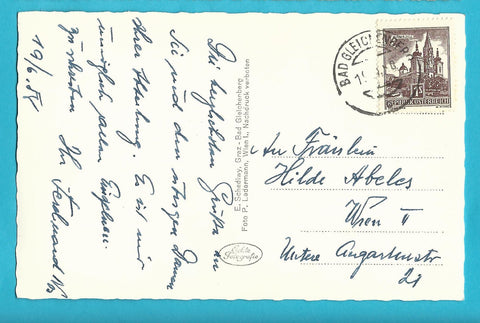 Die herzlichsten Grüße an
Sie und den übrigen Damen
Ihrer Abteilung. Es ist mir
unmöglich
Ihr Ferdinand
19/6.
E. Schediwy, Graz - Bad Gleichenberg
Foto P. Ledermann, Wien I., Nachdruck verboten
Echte
Fotografie
BAD GLEICHENBERG
REPUBLIK ÖSTERREICH
An Fräulein
Hilde Abeles
Wien II
Untere Augartenstr
21